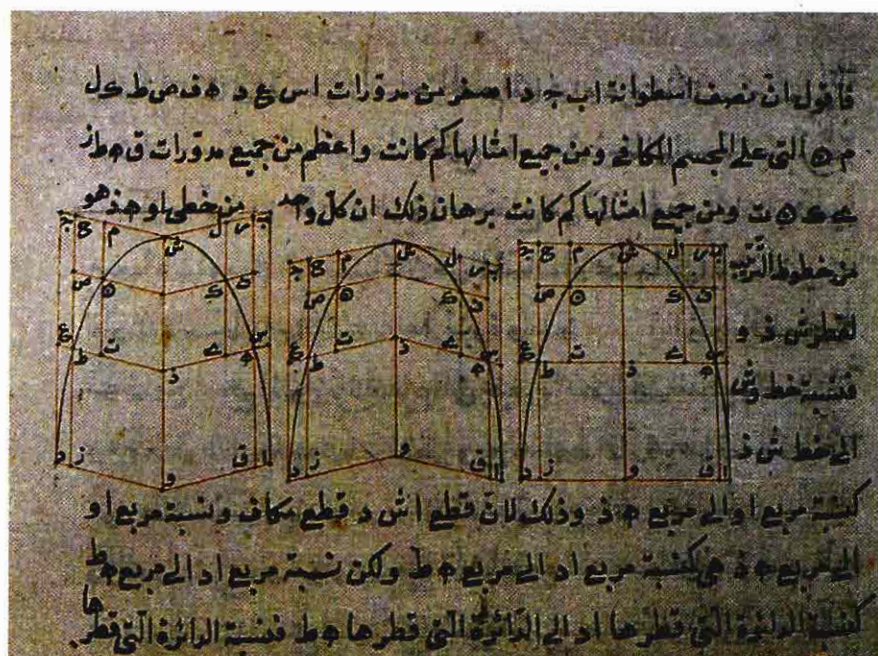 فأقول ان نصف اسطوانة اب جد اصغر من مدورات اس ع د ه ف ص ط ك ل
م ن التى على المجسم المكافى ومن جميع امثالها كم كانت واعظم من جميع مدورات ق ه ط ز
ى ك ن ت ومن جميع امثالها كم كانت برهان ذلك ان كل واحد من خطى او ه ذ هو
من خطوط الترتيب
لقطر ش ذ و
فنسبة خط وش
الى خط ش ذ
كنسبة مربع او الى مربع ه ذ وذلك لان قطع اش د قطع مكاف ونسبة مربع او
الى مربع ه ذ هى كنسبة مربع اد الى مربع ه ط ولكن نسبة مربع اد الى مربع ه ط
كنسبة الدائرة التى قطرها اد الى الدائرة التى قطرها ه ط فنسبة الدائرة التى قطرها